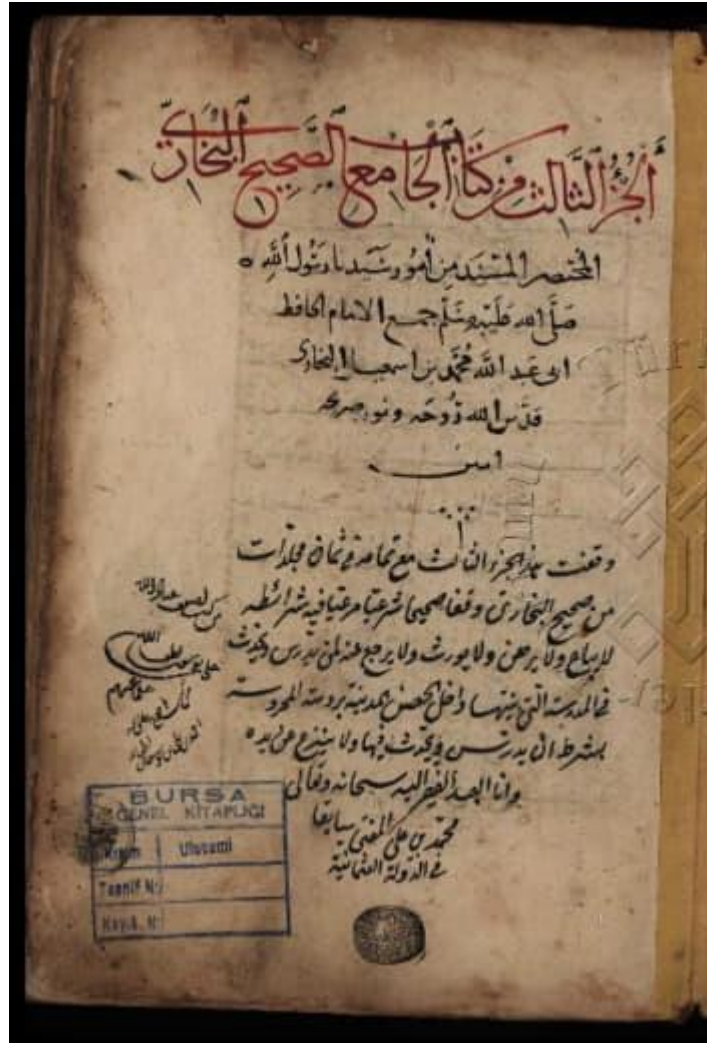 الجُزْءُ الثَّالِث مِنْ كِتَابِ الجَامِعِ الصَّحِيحِ البُخَارِيّ
المختصر المسند من أمور سيدنا رسول الله
صَلَّى الله عَلَيْهِ وسَلَّم جمع الامام الحافظ
ابى عبد الله مُحَمَّد بن اسمعيل البخارى
قدّس الله رُوحَه ونور ضريحه
امين
وقفت هذا الجزء الثالث مع تمامه فى ثمان مجلدات
من صحيح البخارى وقفا صحيحا شرعيا مرعيا فيه شرائطه
لا يباع ولا يرهن ولا يورث ولا يرجع عنه لمن يدرس ويحدث
فى المدرسة التى بنيتها داخل الحصن بمدينة بروسة المحروسة
بشرط ان يدرس ويحدث فيها ولا ينزع عن يده
وانا العبد الفقير اليه سبحانه وتعالى
محمد بن على المفتى سابقا
فى الدولة العثمانية
BURSA
GENEL KİTAPLIĞI
Kısım Ulucami
Tasnif No
Kayıt No